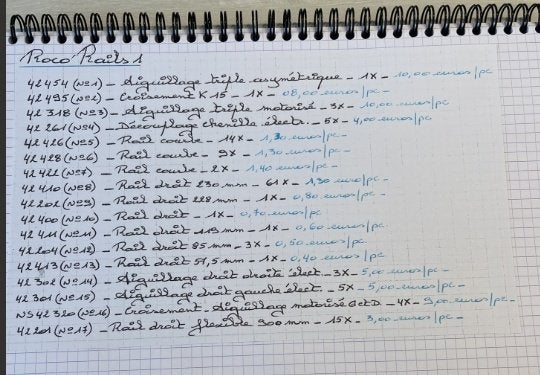 Roco Rails 1
42454 (N°1) - Aiguillage triple asymétrique - 1x - 10,00 euros/pc
42495 (N°2) - Croisement K 15 - 1x - 08,00 euros/pc -
42318 (N°3) - Aiguillage triple motorisé - 3x - 10,00 euros/pc -
42261 (N°4) - Découplage chenille élect. - 5x - 4,00 euros/pc -
42426 (N°5) - Rail courbe - 14x - 1,30 euros/pc -
42428 (N°6) - Rail courbe - 9x - 1,30 euros/pc -
42422 (N°7) - Rail courbe - 2x - 1,40 euros/pc -
42410 (N°8) - Rail droit 230 mm - 61x - 1,30 euros/pc -
42202 (N°9) - Rail droit 228 mm - 1x - 0,80 euros/pc -
42400 (N°10) - Rail droit - 1x - 0,70 euros/pc
42411 (N°11) - Rail droit 119 mm - 1x - 0,60 euros/pc -
42204 (N°12) - Rail droit 85 mm - 3x - 0,50 euros/pc -
42413 (N°13) - Rail droit 57,5 mm - 1x - 0,40 euros/pc -
42302 (N°14) - Aiguillage droit droite élect - 3x - 5,00 euros/pc -
42301 (N°15) - Aiguillage droit gauche élect. - 5x - 5,00 euros/pc -
NS 42320 (N°16) - Croisement - Aiguillage motorisé G et D - 4x - 9,00 euros/pc -
42201 (N°17) - Rail droit flexible 900 mm - 15x - 3,00 euros/pc -